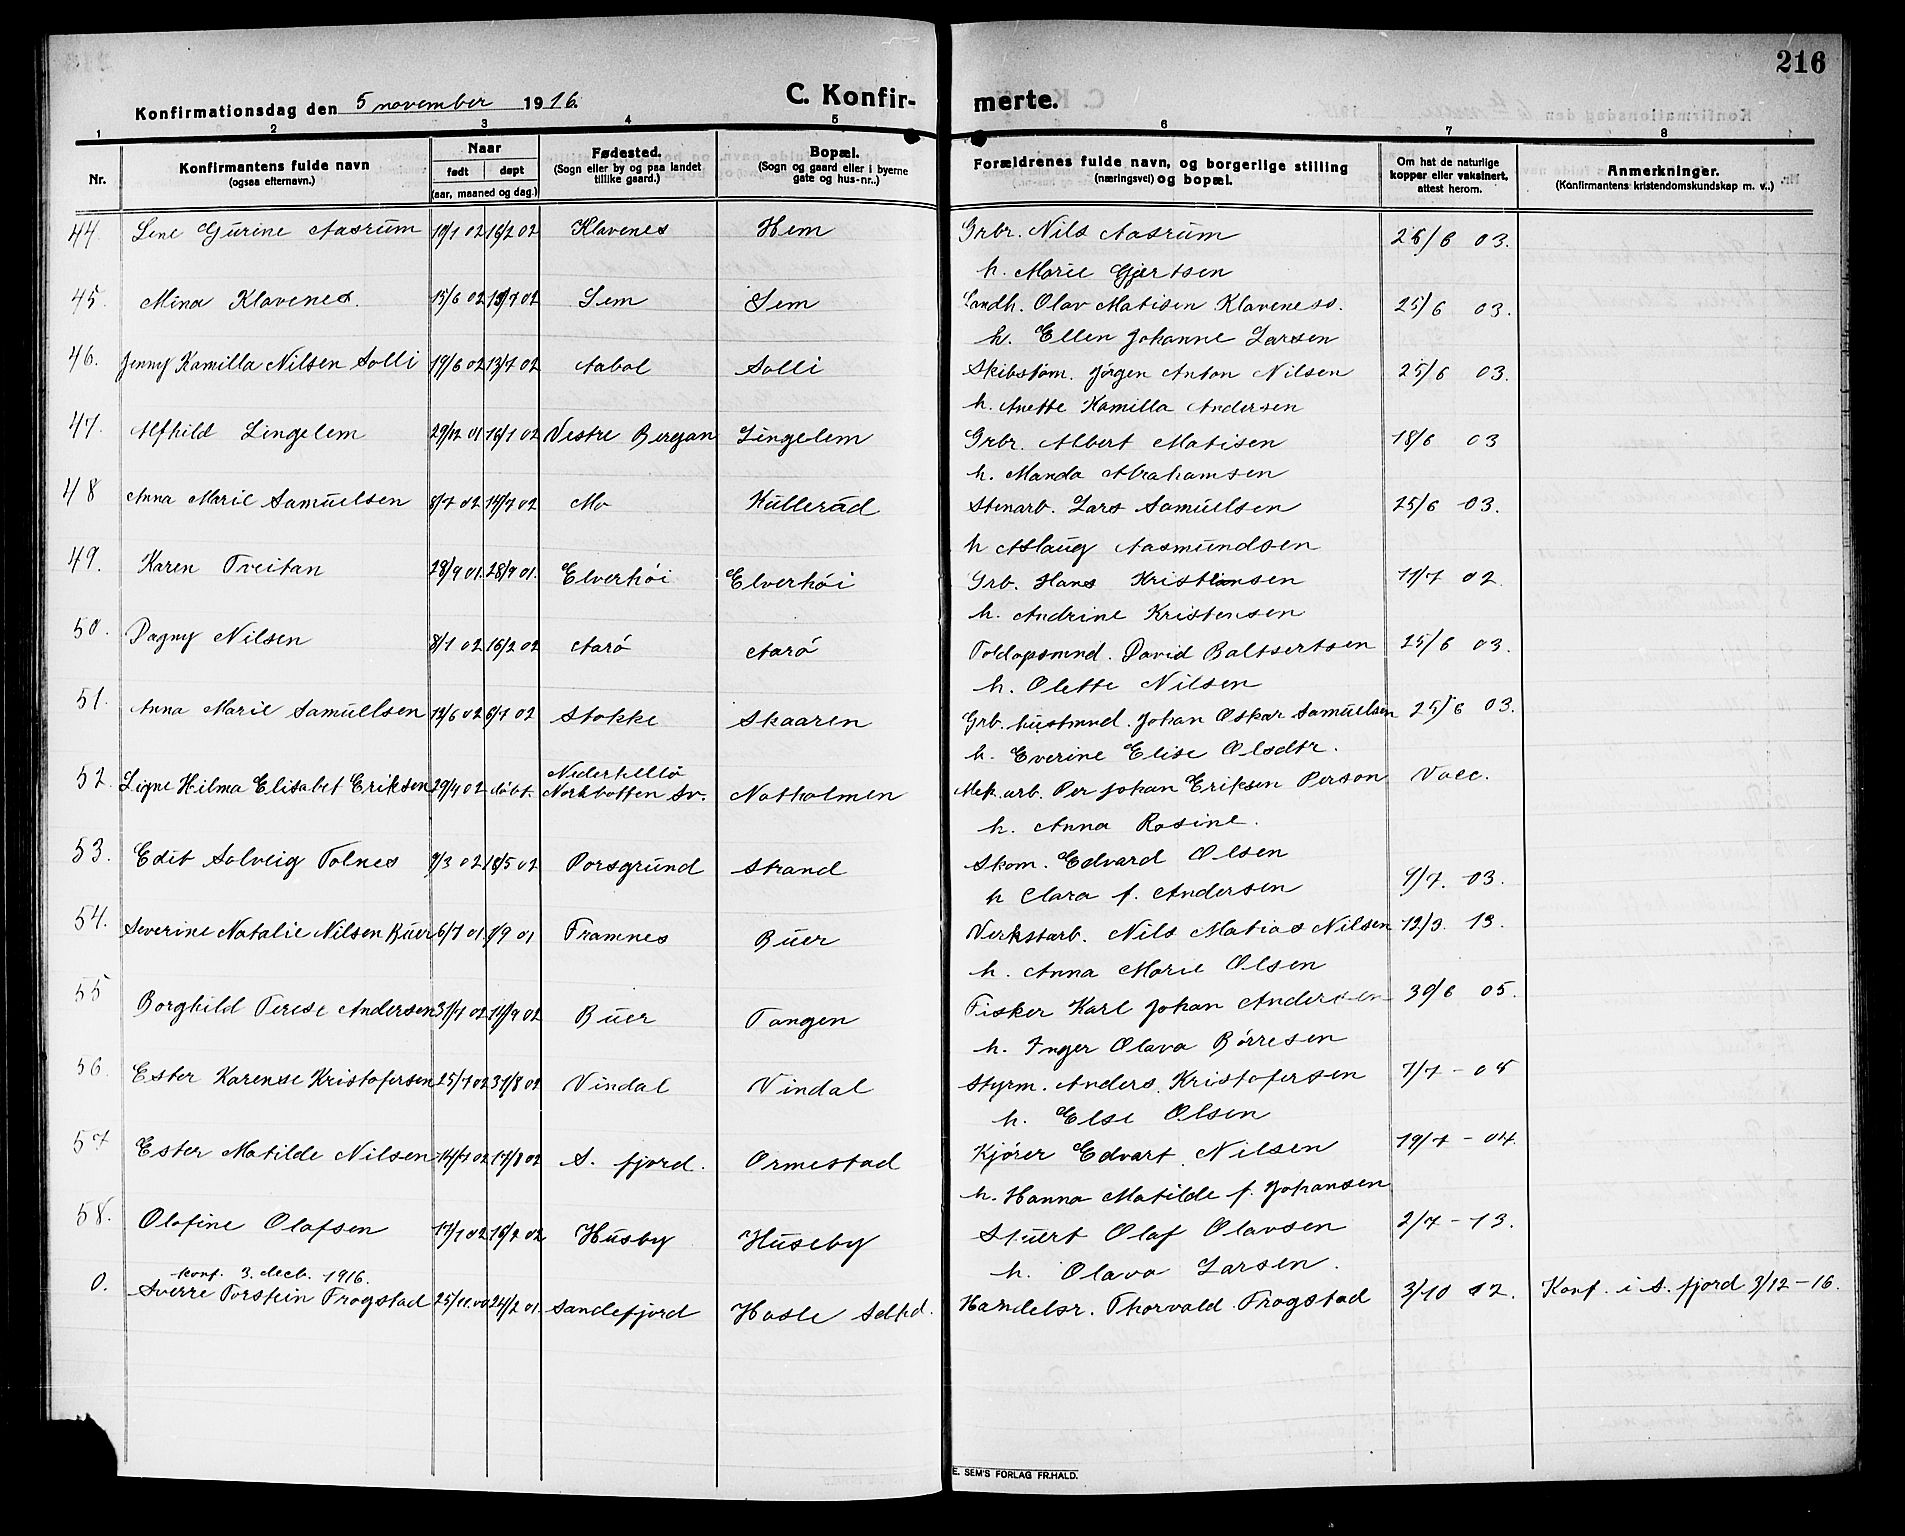 216
Konfirmationsdag den 5 november 1916. C. Konfir- merte.
1 2 3 4 5 6 7 8
Nr. Konfirmantens fulde navn (ogsaa efternavn.) Naar født døpt (aar, maaned og dag.) Fødested. (Sogn eller by og paa landet tillike gaard.) Bopæl. (Sogn og gaard eller i byerne gate og hus-nr.) Forældrenes fulde navn, og borgerlige stilling (næringsvei) og bopæl. Om hat de naturlige kopper eller vaksinert, attest herom. Anmerkninger. (Konfirmantens kristendomskundskap m. v.)
44. Lene Gurine Aasrum 19/1 02 16/2 02 Klavenes Hem Grbr. Nils Aasrum 26/6 03.
h. Marie Gjertsen
45. Mina Klavenes. 15/6 02 13/7 02 Sem Sem Landh. Olav Matisen Klaveness. 25/6 03.
h. Ellen Johanne Larsen
46. Jenny Kamilla Nilsen Solli 19/6 02 13/7 02 Aabol Solli Skibstøm. Jørgen Anton Nilsen 25/6 03.
h. Anette Kamilla Andersen
47. Alfhild Lingelem 29/12 01 16/1 02 Vestre Bergan Lingelem Grbr. Albert Matisen 18/6 03
h. Manda Abrahamsen
48 Anna Marie Samuelsen 8/7 02 14/7 02 Mo Kullerud Stenarb. Lars Samuelsen 25/6 03.
h Aslaug Aasmundsen
49. Karen Tveitan 28/9 01. 28/9 01. Elverhøi Elverhøi Grb. Hans Kristiansen 11/7 02.
h. Andrine Kristensen
50. Dagny Nilsen 8/1 02 16/2 02 Aarø Aarø Toldopsmnd. David Baltsertsen 25/6 03.
h. Olette Nilsen
51. Anna Marie Samuelsen 12/6 02 6/7 02 Stokke Skaaren Grb. husmnd. Johan Oskar Samuelsen 25/6 03.
h. Everine Elise Olsdtr.
52. Signe Hilma Elisabet Eriksen 29/4 02 døbt. Nederkellø Norrbotten Sv. Natholmen Mek. arb. Per Johan Eriksen Person Vacc.
h. Anna Rosine.
53. Edit Solveig Tolnes 9/3 02 18/5 02 Porsgrund Strand Skom. Edvard Olsen
h Clara f. Andersen 9/7. 03.
54. Severine Natalie Nilsen Buer 6/7 01 1/9 01 Framnes Buer Verkstarb. Nils Matias Nilsen 12/3. 13.
h. Anna Marie Olsen
55 Borghild Terese Andersen 31/7 02 14/9 02 Buer Tangen Fisker Karl Johan Andersen 30/6 05.
h. Inger Olava Børresen
56. Ester Karense Kristofersen 25/7 02 31/8 02 Vindal Vindal Styrm. Anders Kristofersen 7/7 - 05
h. Else Olsen
57 Ester Matilde Nilsen 14/7 02 17/8 02 S. fjord. Ormestad Kjører Edvart Nilsen 19/7 - 04.
h. Hanna Matilde f. Johansen
58. Olafine Olafsen 17/1 02 16/2 02 Husby Huseby Stuert Olaf Olavsen 2/7 - 13.
h. Olava Larsen.
konf. 3. decb. 1916.
0. Sverre Torstein Frogstad 25/11.00 24/2 01. Sandefjord Hasle Handelsr. Thorvald Frogstad 3/10 02. Konf. i S. fjord 3/12-16.
E. SEM'S FORLAG FR.HALD.